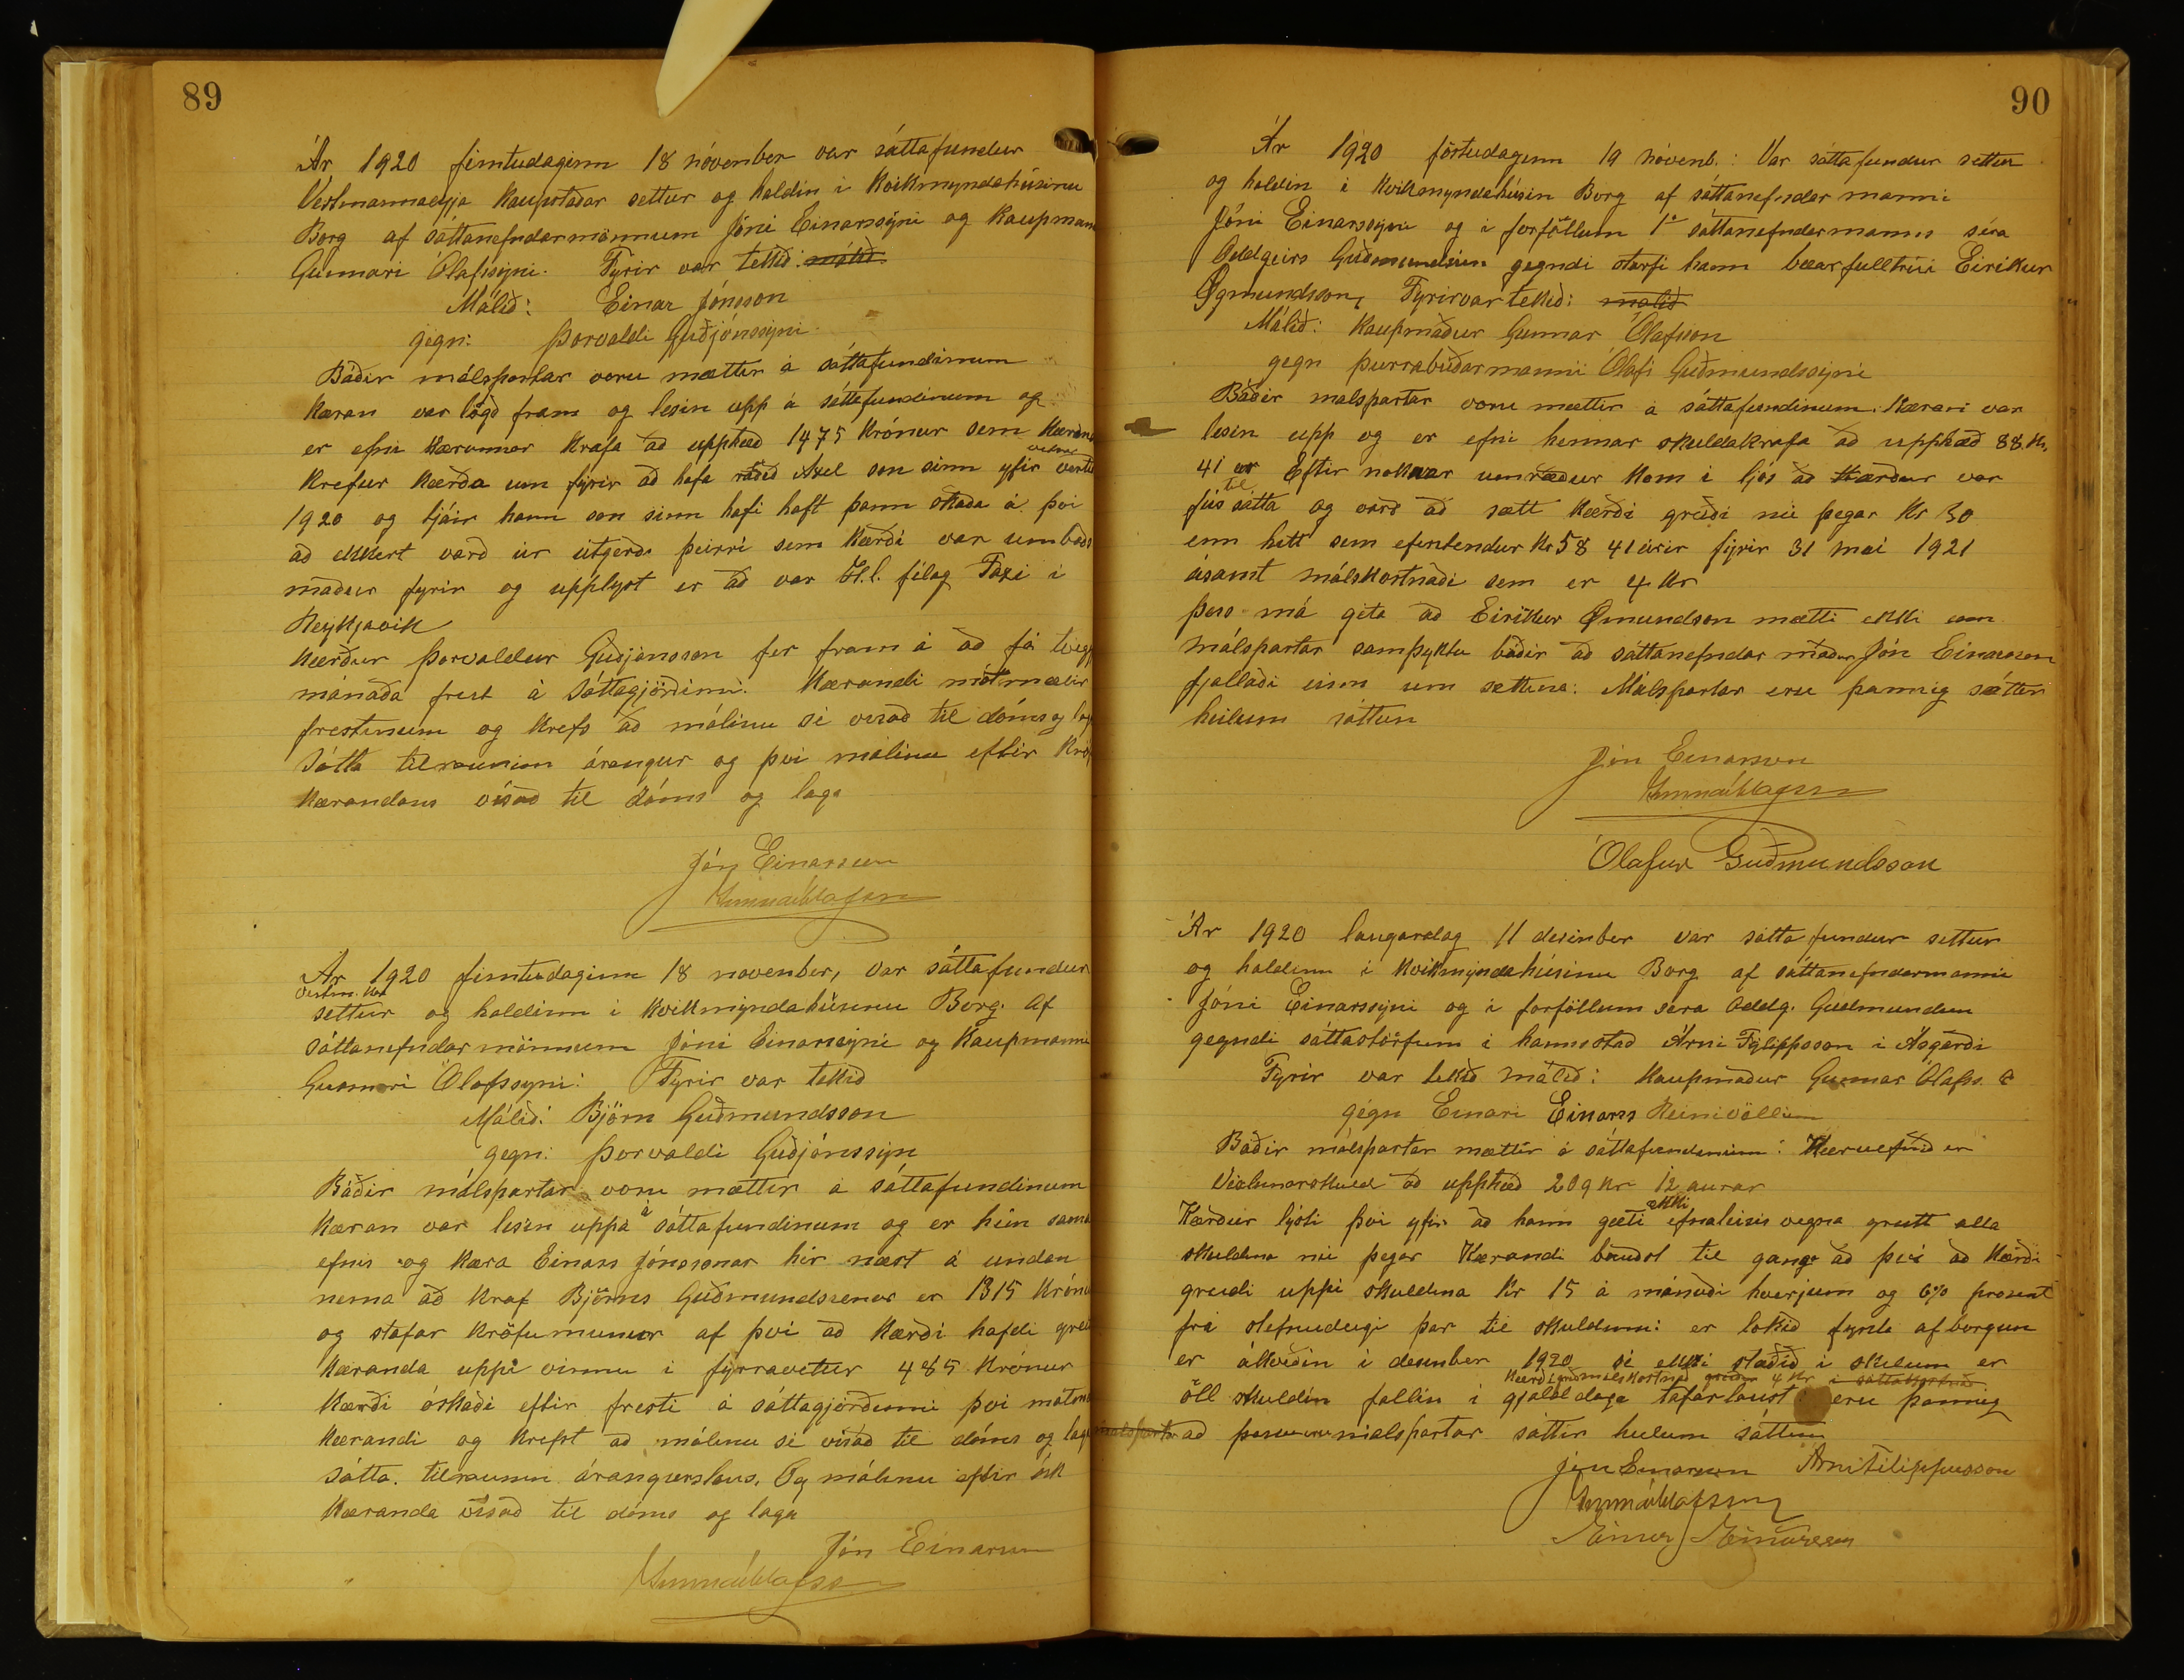 89
Ár 1920 fimtudaginn 18 nóvenber var sáttafundur
Vestmannaeyja Kaupstaðar settur og haldin i Kvikmyndahúsinu
Borg af sáttanefndarmönnum Jóni Einarssýni og Kaupman
Gunnari Ólafssýni. Fyrir var tekið: málið.
Málið: Einar Jónsson
gegn: Þorvaldi Guðjónssýni.
Báðir málspartar voru mættir á sáttafundinum
Kæran var lögð fram og lesin upp á sáttafundinum og
er efni Kærunnar Krafa að upphæð 1475 Krónur sem Kæran
Krefur Kærða um fyrir að hafa ráðið Axel son sinn yfir vertíð
1920 og tjáir hann son sinn hafi haft þann skaða á því
að ekkert varð úr útgerð þeirri sem Kærði var umboðs
maður fyrir og upplyst er að var H.l. félag Faxi i
Reykjavik
Kærður Þorvaldur Guðjónsson fer fram á að fá tvegg
mánaða frest á Sáttagjörðinni. Kærandi mótmælir
frestinum og Krefs að málinu sé vísað til dóms og lag
Sátta tilraunin árangur og því málinu eftir Kröf
Kærandans vísað til dóms og laga
Jón Einarsson
Gunnar Ólafsson
Ár 1920 fimtudaginn 18 november, var sáttafundur
Vestm. Kst
settur og haldinn i Kvikmýndahúsinu Borg. af
Sáttanefndarmönnum Jóni Einarssýni og Kaupmanni
Gunnari Ólafssyni: Fyrir var tekið
Málið: Björn Guðmundsson
gegn: Þorvaldi Guðjónssýn
Báðir málspartar voru mættir á sáttafundinum
Kæran var lesin uppá á sáttafundinum og er hún sama
efnis og Kæra Einars Jónssonar hér næst á undan
nema að Kraf Björns Guðmundssonar er 1315 Krónu
og stafar Kröfumunur af því að Kærði hafdi grei
Kæranda uppi vinnu i fýrravetur 485 Krónur
Kærði óskaði eftir fresti á sáttagjörðinni því mótm
Kærandi og Krefst að málinu sé vísað til dóms og laga
Sátta. tilraunin árangurslaus. Og málinu eftir ósk
Kæranda vísað til dóms og laga
Jón Einarsson
Gunnar Ólafsson
90
Ár 1920 föstudaginn 19 nóvenb.: Var sáttafundur settur
og haldin i Kvikmyndahúsin Borg af sáttanefndar manni
Jóni Einarssýni og i forföllum 1° sáttanefndarmanns séra
Oddgeirs Guðmundsen gegndi starfi hann bæarfulltrúi Eirikur
Øgmundsson, Fyrirvartekið: málið
Málið: Kaupmaður Gunnar Ólafsson
gegn Þurrabúðarmanni Ólafi Guðmundssýni
Báðir malspartar voru mættir á sáttafundinum. Kæran var
lesin upp og er efni hennar skuldakrafa að upphæð 88. Kr.
41 Eftir nokkrar umræður Kom i ljós að Kærður var
fús til sátta og varð að sætt Kærði greiði nú þegar Kr 30
enn hitt sem eftirstendur Kr 58 41 aurir fýrir 31 mai 1921
ásamt málskostnaði sem er 4 Kr
Þess má geta að Eirikur Ømundson mætti ekki enn
málspartar samþyktu báðir að sáttanefndar maður Jón Einarsson
fjallaði einn um sættina: Málspartar eru þannig sáttir
heilum sáttum
Jón Einarsson
Gunnar Ólafsson
Ólafur Guðmundsson
Ár 1920 laugardag 11 desinber var sátta fundur settur
og haldinn i Kvikmýndahúsinu Borg af sáttanefndarmanni
Jóni Einarssýni og i forföllum séra Oddg. Gudmundsen
gegndi sáttastörfum i hansstað Árni Fýlippsson i Ásgarði
Fyrir var tekið málið: Kaupmaður Gunnar Ólafss. &
gegn Einari Einarss Heimivöllum
Báðir málspartar mættir á sáttafundinum: Kæruefnið er
Verslunarskuld að upphæð 209 Kr 12 aurar
Kærður lýsti því yfir að hann gæti ekki efnaleisis vegna greitt alla
skuldina nú þegar Kærandi bauðst til ganga að því að Kærði
greidi uppi skuldina Kr 15 á mánuði hverjum og 6% prosent
frá stefnudeigi þar til skuldinni er lokið fyrsta afborgun
er ákveðin i desenber 1920 sé ekki staðið i skilum er
Kærði greiði málskostnað greiðir 4 Kr i sáttakostnað
öll skuldin fallin i gjalddaga tafarlaust eru þannig
málspartar að þessu eru malspartar sáttir heilum sáttum
Jón Einarsson Árni Filippusson
Gunnar Ólafsson
Einar Einarsson